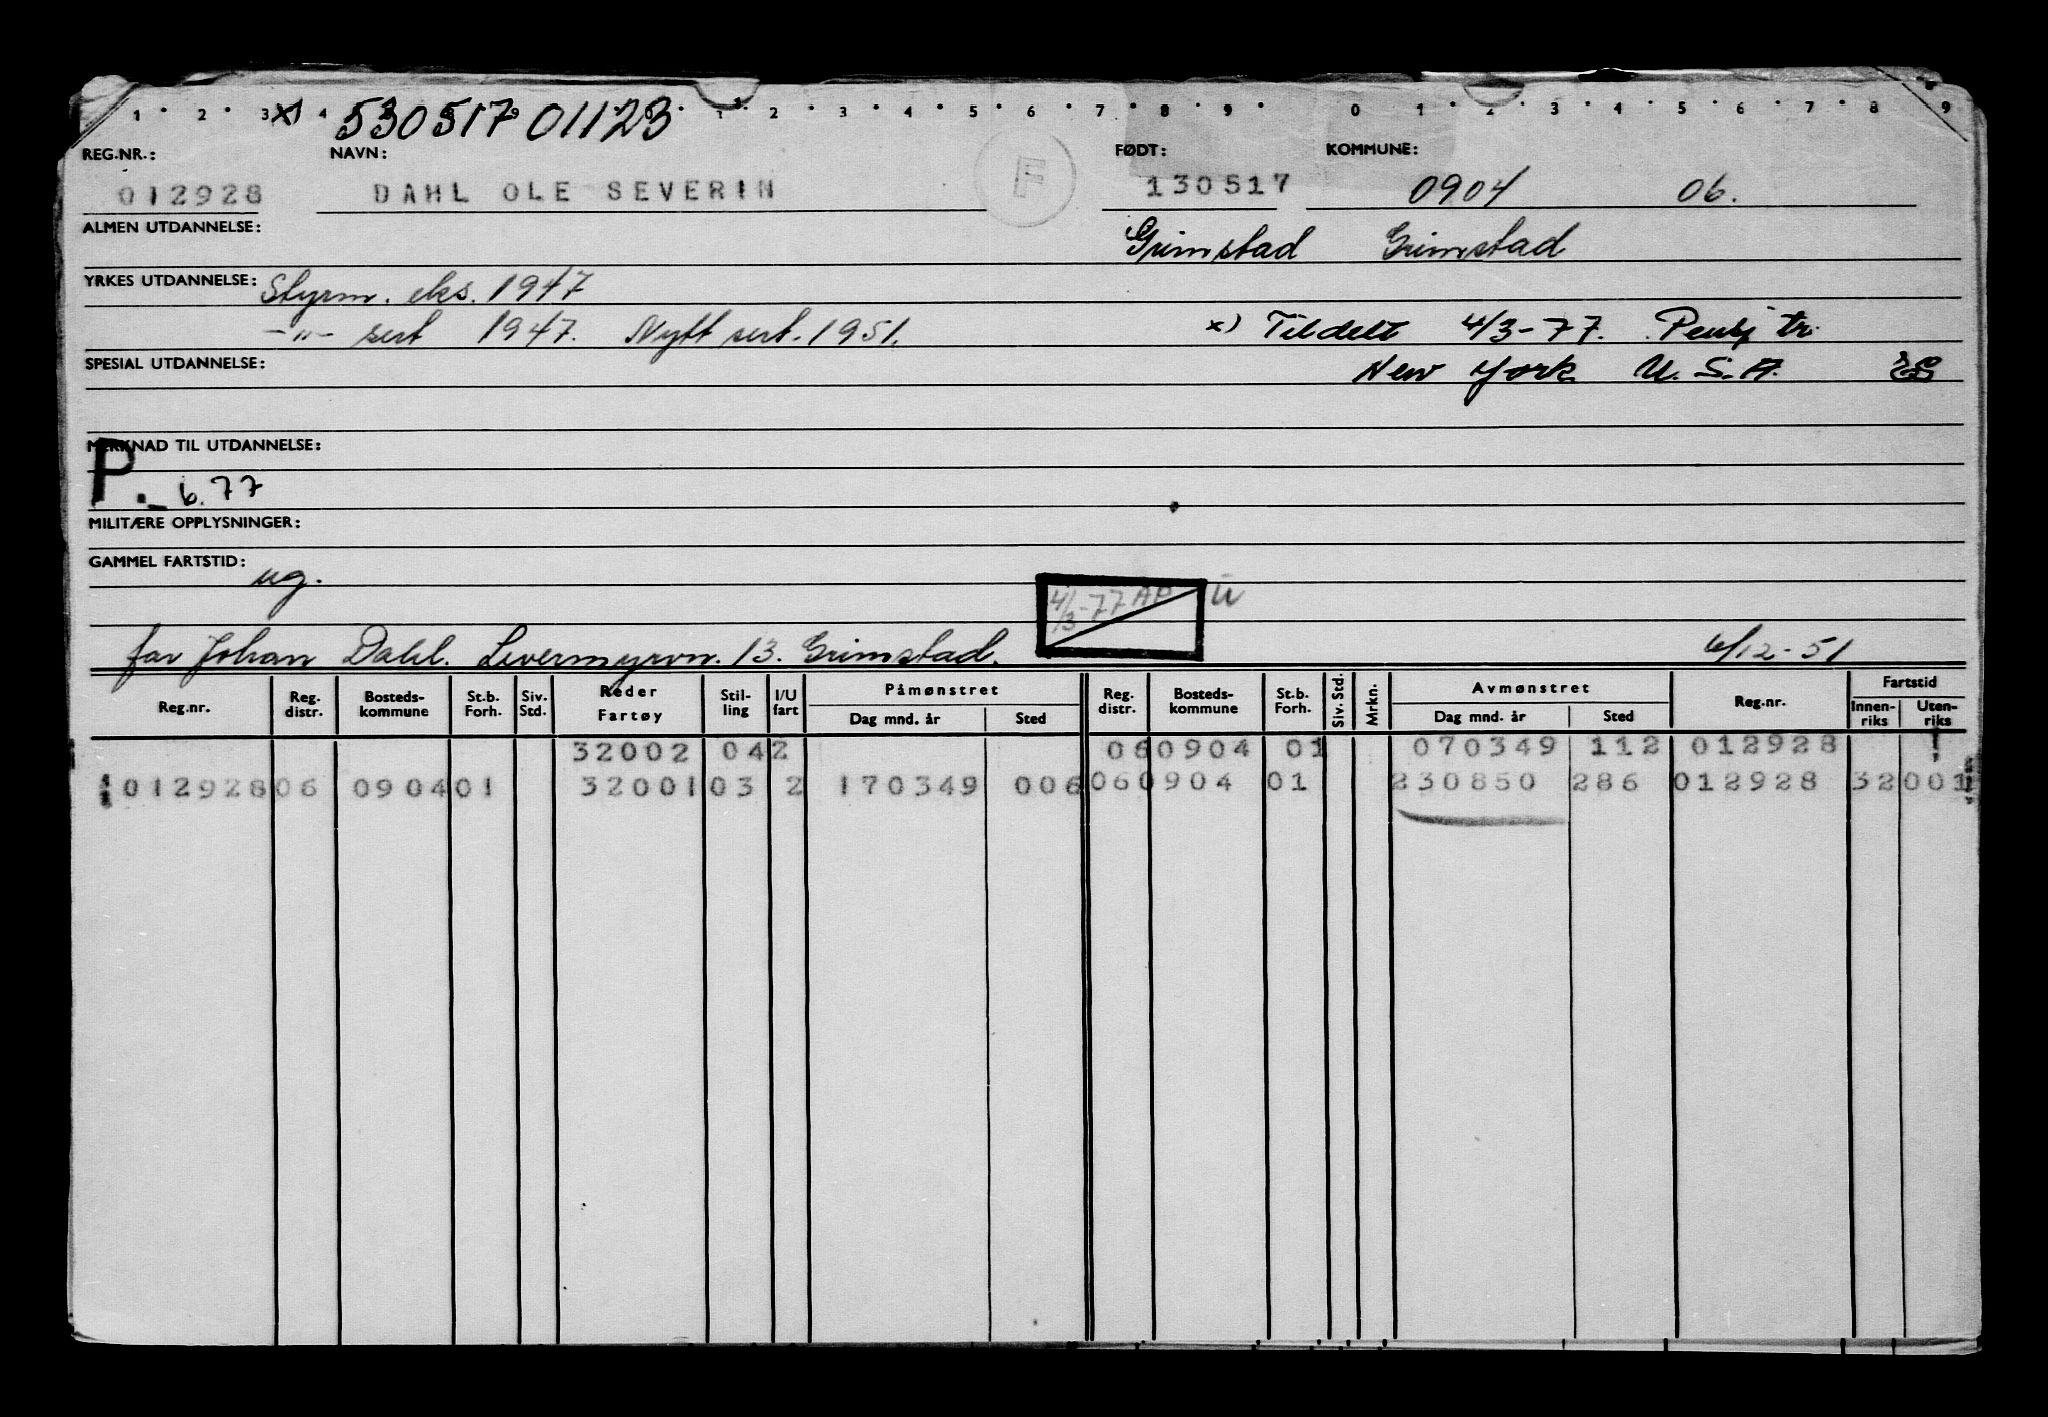 1 · 2 · 3 x) 4 53051701123 · 1 · 2 · 3 · 4 · 5 · 6 · 7 · 8 · 9 · 0 · 1 · 2 · 3 · 4 · 5 · 6 · 7 · 8 · 9
REG.NR.: NAVN: F FØDT: KOMMUNE:
012928 DAHL OLE SEVERIN 130517 0904 06.
ALMEN UTDANNELSE: Grimstad Grimstad
YRKES UTDANNELSE: Styrm. eks. 1947
-"- sert 1947. Nytt sert. 1951. x) Tildelt 4/3-77. Pensj tr.
SPESIAL UTDANNELSE: New York U.S.A.
MERKNAD TIL UTDANNELSE:
P. 6.77
MILITÆRE OPPLYSNINGER:
GAMMEL FARTSTID:
ug. 4/3-77 AP U
far Johan Dahl. Levermyrvn. 13. Grimstad. 4/12-51
Reg.nr. Reg. distr. Bosteds-kommune St.b. Forh. Siv. Std. Reder Fartøy Stil-ling I/U fart Påmønstret Dag mnd. år Sted Reg. distr. Bosteds-kommune St.b. Forh. Siv. Std. Mrkn. Avmønstret Dag mnd. år Sted Reg.nr. Fartstid Innen-riks Uten-riks
32002 04 2 06 0904 01 070349 112 012928
012928 06 0904 01 32001 03 2 170349 006 06 0904 01 230850 286 012928 32 001